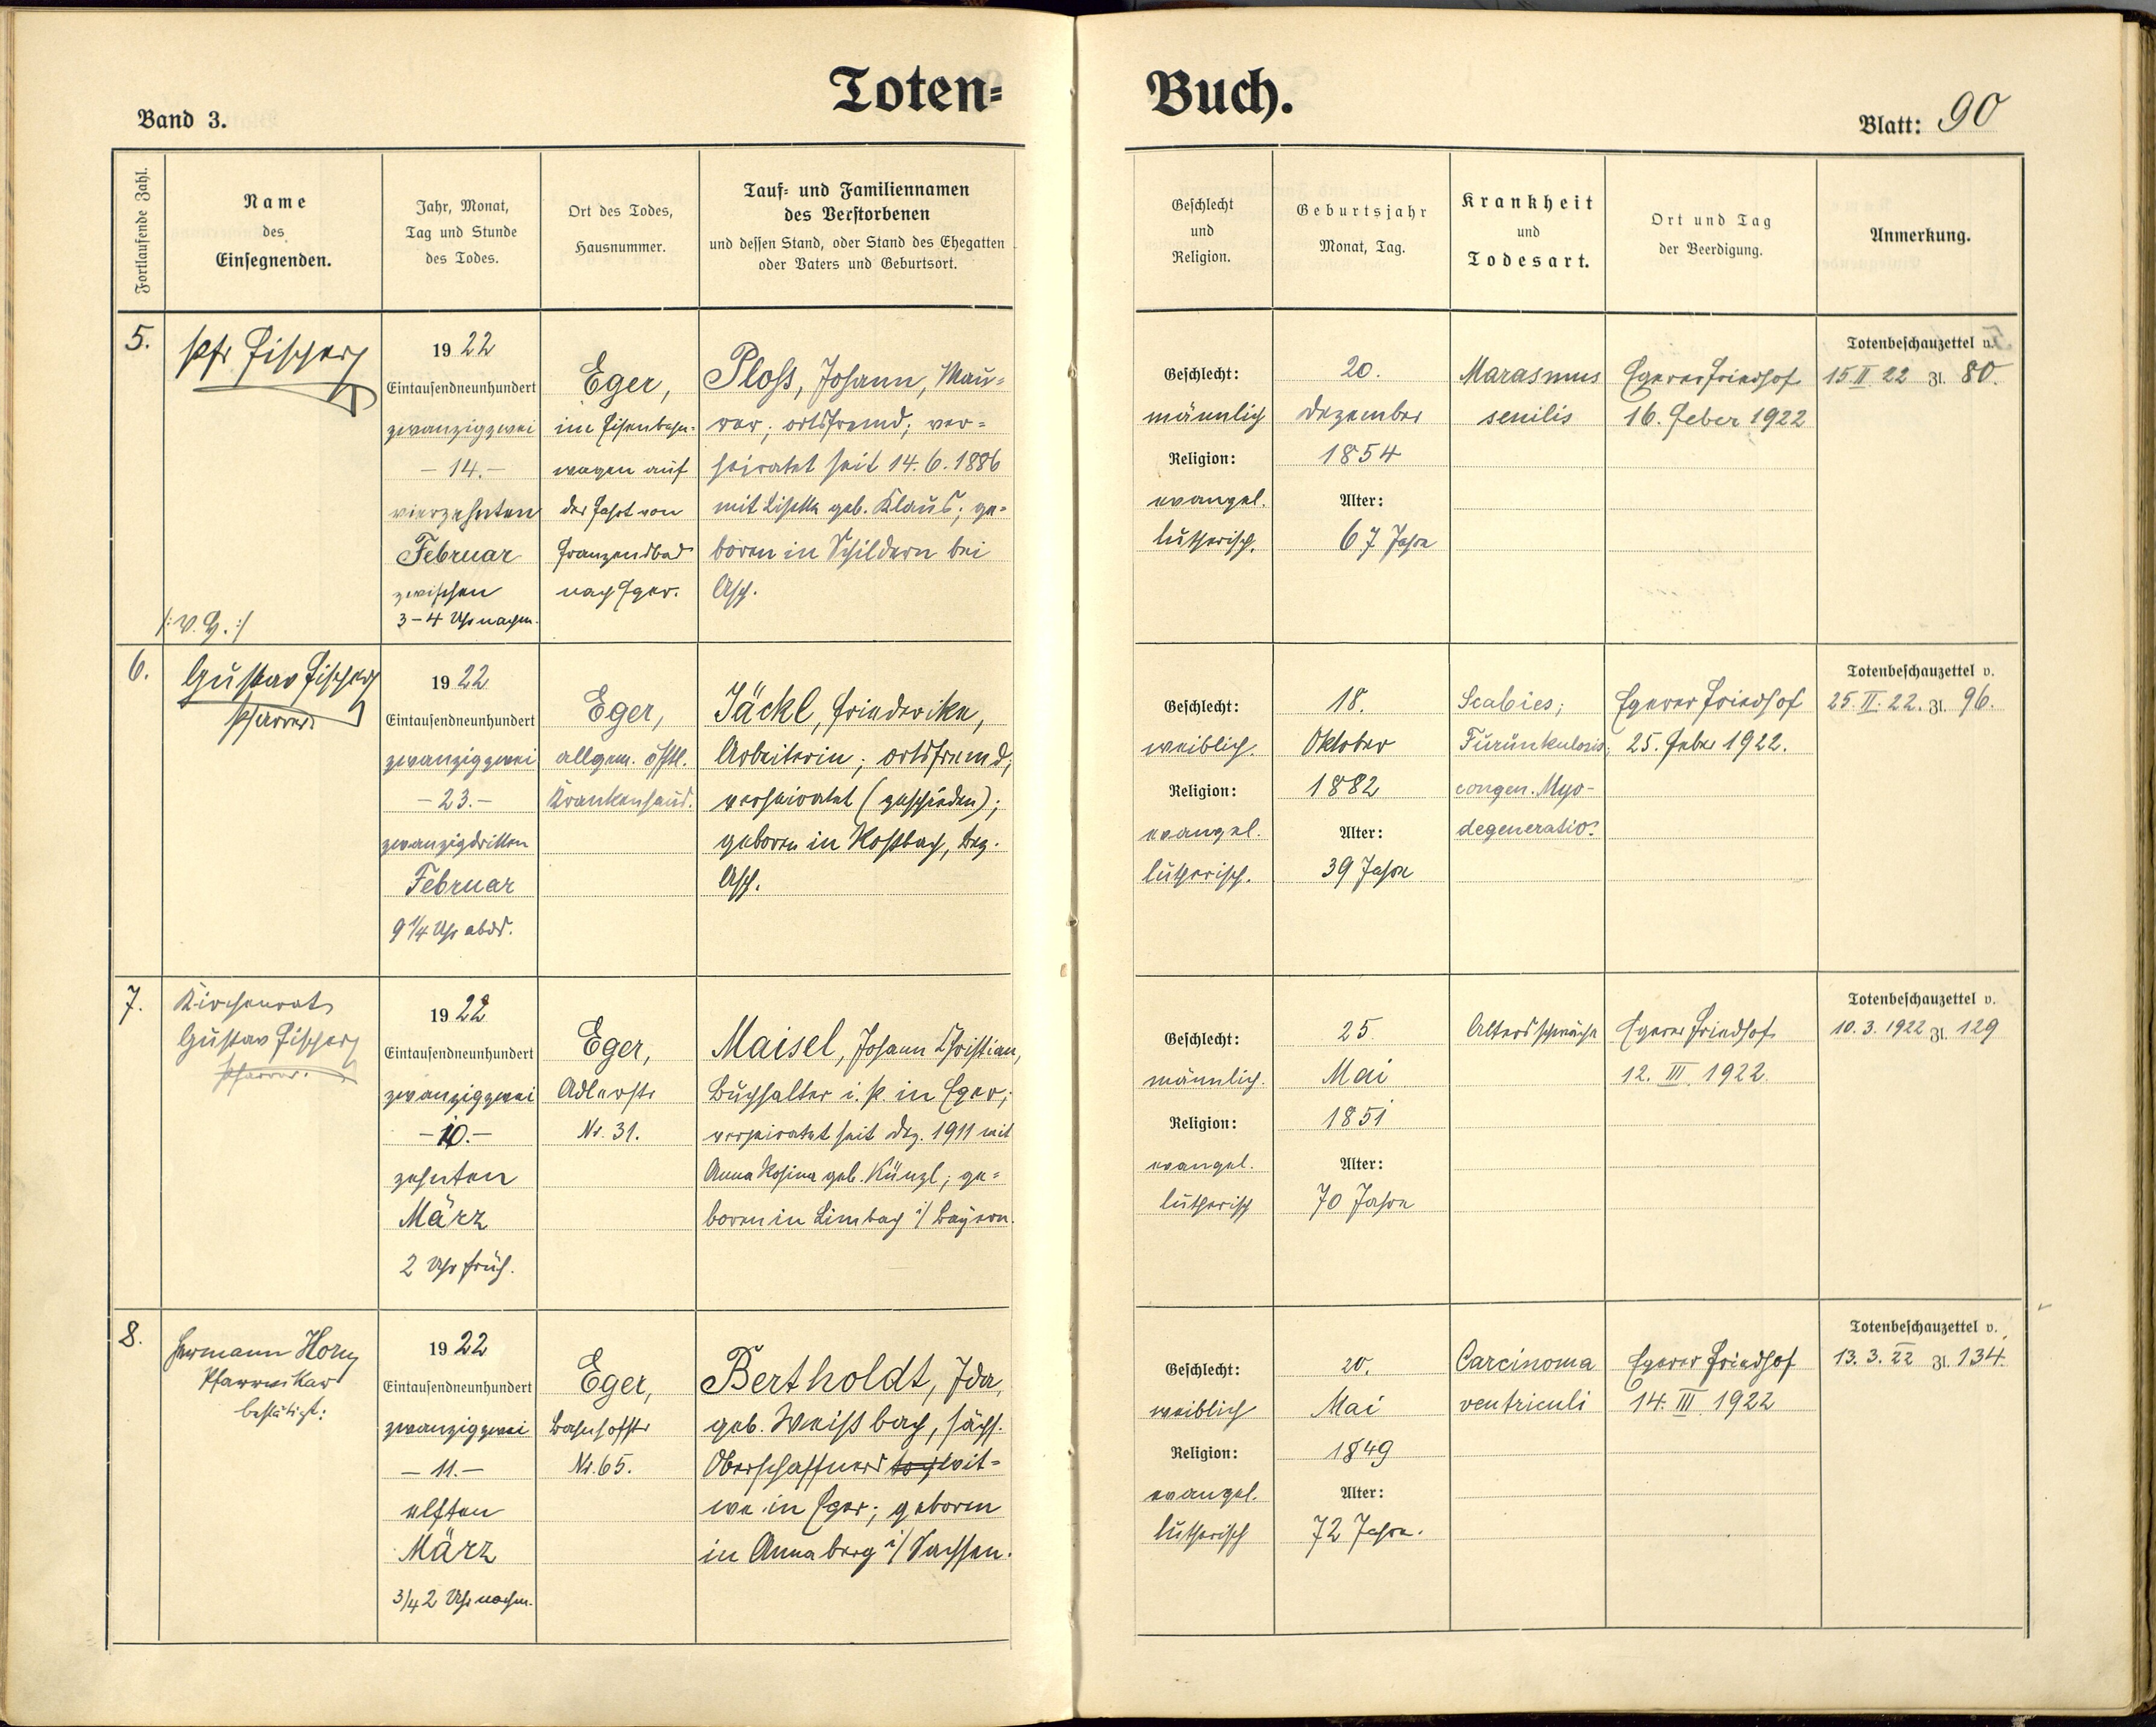 Toten-
Buch.
Band 3.
Blatt: 90
Fortlaufende Zahl.
Name
des
Einsegnenden.
Jahr, Monat,
Tag und Stunde
des Todes.
Ort des Todes,
Hausnummer.
Tauf- und Familiennamen
des Verstorbenen
und dessen Stand, oder Stand des Ehegatten
oder Vaters und Geburtsort.
Geschlecht
und
Religion.
Geburtsjahr
Monat, Tag.
Krankheit
und
Todesart.
Ort und Tag
der Beerdigung.
Anmerkung.
5.
Pfr Fischer
/: v. G. :/
1922
Eintausendneunhundert
zwanzigzwei
– 14. –
vierzehnten
Februar
zwischen
3–4 Uhr nachm.
Eger,
im Eisenbahn-
wagen auf
der Fahrt von
Franzensbad
nach Eger.
Ploss, Johann, Mau-
rer; ortsfremd; ver-
heiratet seit 14. 6. 1886
mit Lisette geb. Klaus; ge-
boren in Schildern bei
Asch.
Geschlecht:
männlich
Religion:
evangel.
lutherisch.
20.
Dezember
1854
Alter:
67 Jahre
Marasmus
senilis
Egerer Friedhof
16. Feber 1922
Totenbeschauzettel v.
15. II. 22 Zl. 80.
6.
Gustav Fischer
Pfarrer.
1922
Eintausendneunhundert
zwanzigzwei
– 23. –
zwanzigdritten
Februar
9 1/4 Uhr abds.
Eger,
allgem. öfftl.
Krankenhaus.
Jäckl, Friederike,
Arbeiterin; ortsfremd;
verheiratet (geschieden);
geboren in Rossbach, Bez.
Asch.
Geschlecht:
weiblich.
Religion:
evangel.
lutherisch.
18.
Oktober
1882
Alter:
39 Jahre
Scabies;
Furunkulosis;
congen. Myo-
degeneratio.
Egerer Friedhof
25. Feber 1922.
Totenbeschauzettel v.
25. II. 22. Zl. 96.
7.
Kirchenrat
Gustav Fischer
Pfarrer.
1922
Eintausendneunhundert
zwanzigzwei
– 10. –
zehnten
März
2 Uhr früh.
Eger,
Adlerstr
Nr. 31.
Maisel, Johann Christian,
Buchhalter i. P. in Eger;
verheiratet seit Dez. 1911 mit
Anna Rosina geb. Künzl; ge-
boren in Limbach i/ Bayern.
Geschlecht:
männlich.
Religion:
evangel.
lutherisch
25
Mai
1851
Alter:
70 Jahre
Altersschwäche
Egerer Friedhof
12. III. 1922.
Totenbeschauzettel v.
10. 3. 1922 Zl. 129
8.
Hermann Horn
Pfarrvikar
bestätigt:
1922
Eintausendneunhundert
zwanzigzwei
– 11. –
elften
März
3/4 2 Uhr nachm.
Eger,
Bahnhofstr
Nr. 65.
Bertholdt, Ida,
geb. Weissbach, sächs.
Oberschaffners wit-
we in Eger; geboren
in Annaberg i/ Sachsen.
Geschlecht:
weiblich
Religion:
evangel.
lutherisch
20.
Mai
1849
Alter:
72 Jahre.
Carcinoma
ventriculi
Egerer Friedhof
14. III. 1922
Totenbeschauzettel v.
13. 3. 22 Zl. 134.